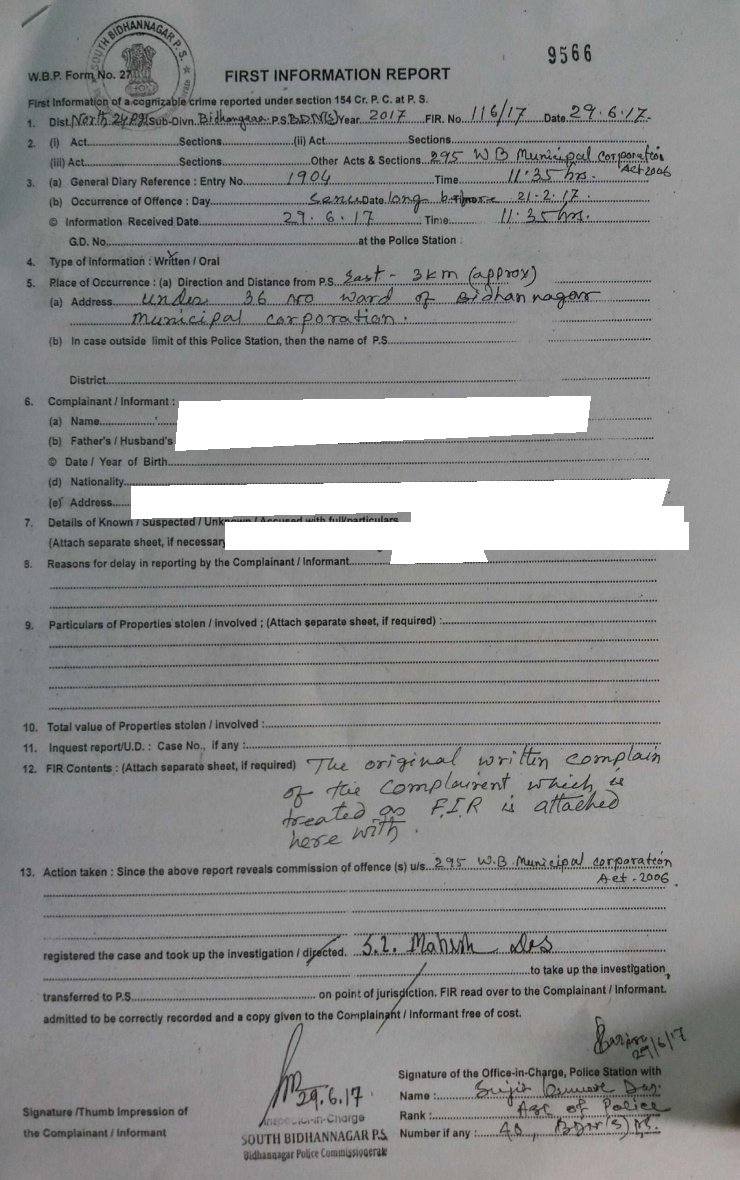 SOUTH BIDHANNAGAR P.S.
9566
W.B.P. Form No. 27
FIRST INFORMATION REPORT
First Information of a cognizable crime reported under section 154 Cr. P. C. at P. S.
1. Dist. North 24 Sub-Divn. P.S. BDN(S) Year 2017 FIR. No. 116/17 Date 29.6.17.
2. (i) Act Sections (ii) Act Sections
(iii) Act Sections Other Acts & Sections 295 W B Municipal Corporation Act 2006
3. (a) General Diary Reference : Entry No. 1904 Time 11:35 hrs.
(b) Occurrence of Offence : Day Since Date long 21-2-17.
© Information Received Date 29.6.17 Time 11:35 hrs.
G.D. No. at the Police Station :
4. Type of Information : Written / Oral
5. Place of Occurrence : (a) Direction and Distance from P.S. East - 3 km (approx)
(a) Address under 36 no ward of Bidhannagar
Municipal corporation.
(b) In case outside limit of this Police Station, then the name of P.S.
District
6. Complainant / Informant :
(a) Name
(b) Father's / Husband's
© Date / Year of Birth
(d) Nationality
(e) Address
7. Details of Known / Suspected / Unknown / Accused with full/particulars
(Attach separate sheet, if necessary
8. Reasons for delay in reporting by the Complainant / Informant
9. Particulars of Properties stolen / involved ; (Attach separate sheet, if required) :
10. Total value of Properties stolen / involved :
11. Inquest report/U.D. : Case No., if any :
12. FIR Contents : (Attach separate sheet, if required) The original written complain
of the complainent which is
treated as F.I.R is attached
here with.
13. Action taken : Since the above report reveals commission of offence (s) u/s. 295 W.B. Municipal corporation
Act - 2006.
registered the case and took up the investigation / directed. S.I. Mahesh Das
to take up the investigation,
transferred to P.S. on point of jurisdiction. FIR read over to the Complainant / Informant.
admitted to be correctly recorded and a copy given to the Complainant / Informant free of cost.
29/6/17
Signature of the Office-in-Charge, Police Station with
29.6.17
Name : Sujit Kumar Das.
Signature /Thumb Impression of
Inspector-in-Charge
Rank : of Police
the Complainant / Informant
SOUTH BIDHANNAGAR P.S.
Number if any :
Bidhannagar Police Commissionerate